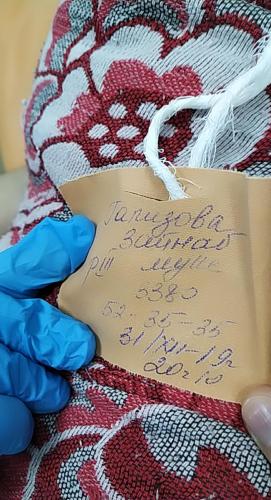 Гапизова
Зайнаб
РШ муне
5380
52-35-35
31/XII-19г
20г10